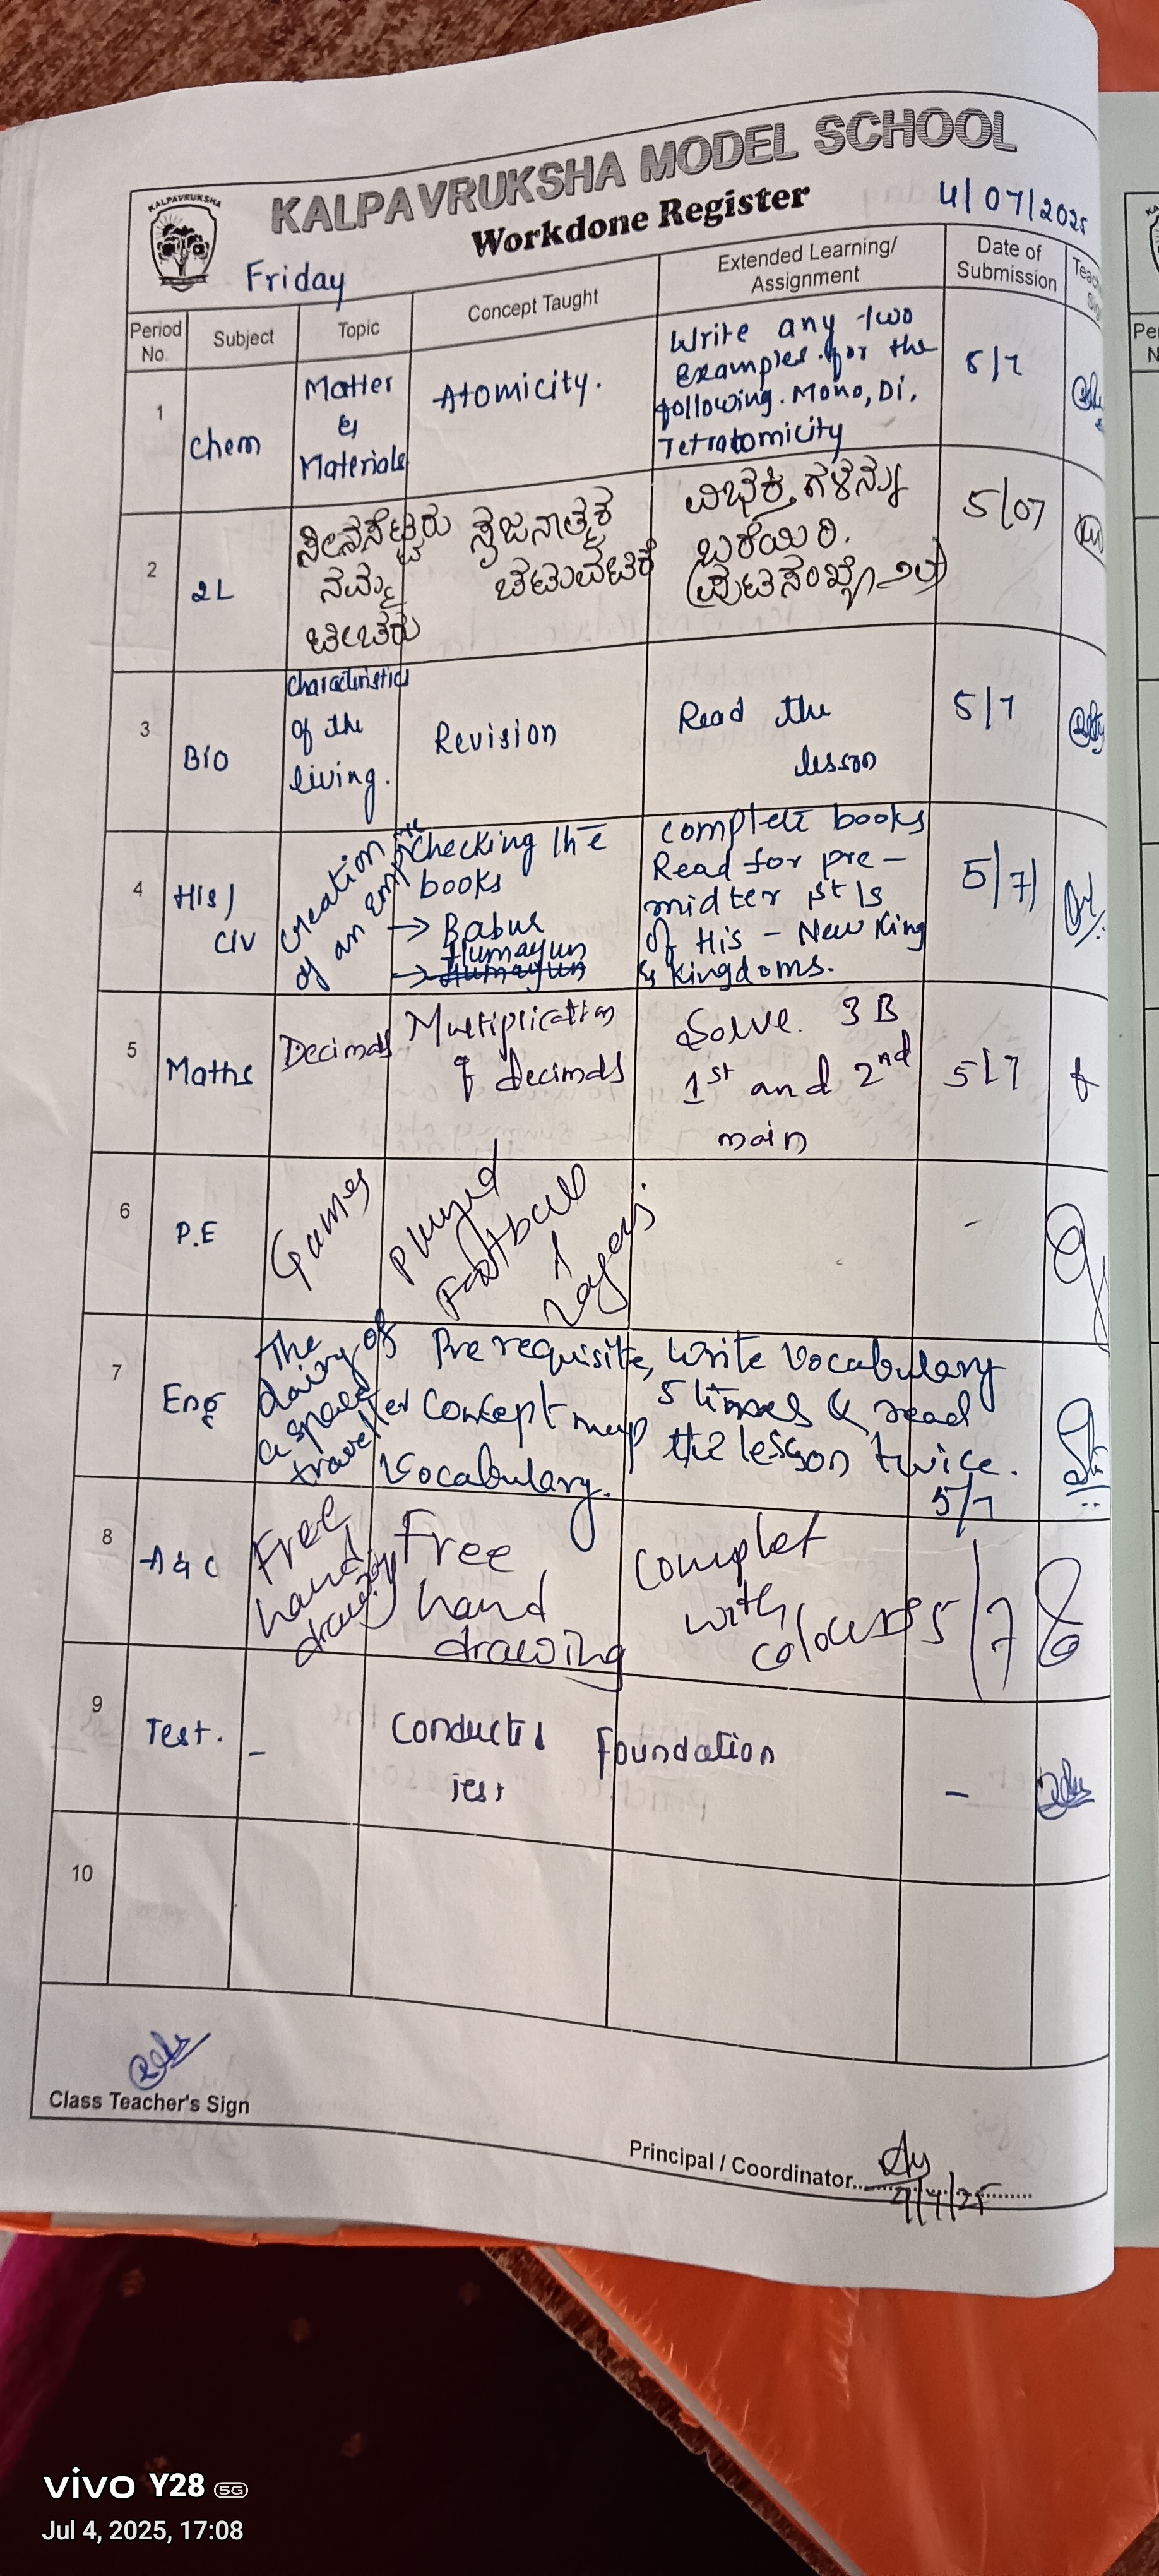 KALPAVRUKSHA
KALPAVRUKSHA MODEL SCHOOL
Workdone Register
4/07/2025
Friday
Period No.
Subject
Topic
Concept Taught
Extended Learning/ Assignment
Date of Submission
1
Chem
Matter
&
Materials
Atomicity.
Write any two
examples for the
following. Mono, Di,
Tetratomicity
5/7
2
2L
ಸೀನಸೆಟ್ಟರು
ನಮ್ಮ
ಟೀಚರು
ಸೃಜನಾತ್ಮಕ
ಚಟುವಟಿಕೆ
ವಿಭಕ್ತಿಗಳನ್ನು
ಬರೆಯಿರಿ.
(ಪುಟಸಂಖ್ಯೆ
5/07
3
BIO
Characteristics
of the
living.
Revision
Read the
lesson
5/7
4
His/
Civ
Creation
of an empire
Checking the
books
→ Babur
Humayun
→ Humayun
complete books
Read for pre-
midter
of His - New King
& Kingdoms.
5/7/
5
Maths
Decimals
Multiplication
of decimals
Solve. 3B
1st and 2nd
main
5/7
6
P.E
Games
Played
Football
-
7
Eng
The
dairy of
a space
traveller
Prerequisite,
Concept map
Vocabulary.
Write Vocabulary
5 times & read
the lesson twice.
5/7
8
A & C
Free
hand
drawing
Free
hand
drawing
Complet
with
colours
5/7
9
Test.
-
Conducted Foundation
test
-
10
Class Teacher's Sign
Principal / Coordinator
vivo Y28 5G
Jul 4, 2025, 17:08